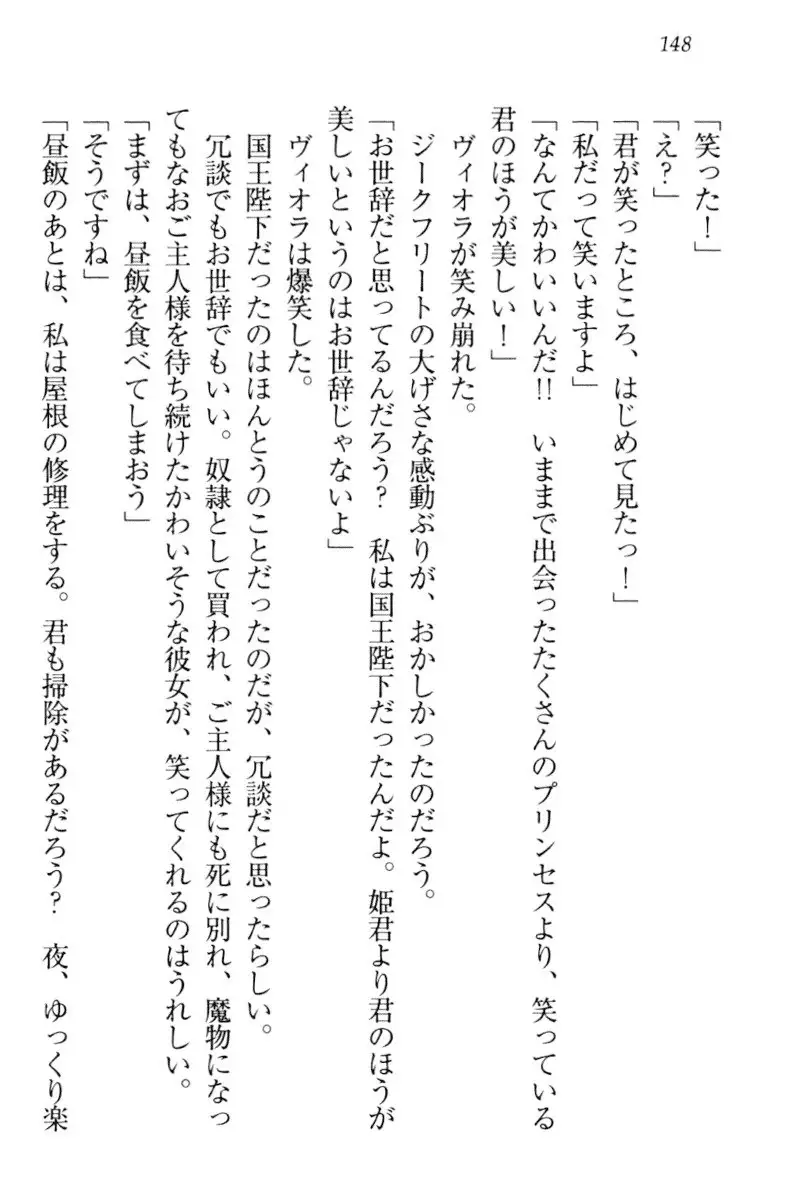 148
「笑った！」
「え？」
「君が笑ったところ、はじめて見たっ！」
「私だって笑いますよ」
「なんてかわいいんだ!!　いままで出会ったたくさんのプリンセスより、笑っている
君のほうが美しい！」
ヴィオラが笑み崩れた。
ジークフリートの大げさな感動ぶりが、おかしかったのだろう。
「お世辞だと思ってるんだろう？　私は国王陛下だったんだよ。姫君より君のほうが
美しいというのはお世辞じゃないよ」
ヴィオラは爆笑した。
国王陛下だったのはほんとうのことだったのだが、冗談だと思ったらしい。
冗談でもお世辞でもいい。奴隷として買われ、ご主人様にも死に別れ、魔物になっ
てもなおご主人様を待ち続けたかわいそうな彼女が、笑ってくれるのはうれしい。
「まずは、昼飯を食べてしまおう」
「そうですね」
「昼飯のあとは、私は屋根の修理をする。君も掃除があるだろう？　夜、ゆっくり楽